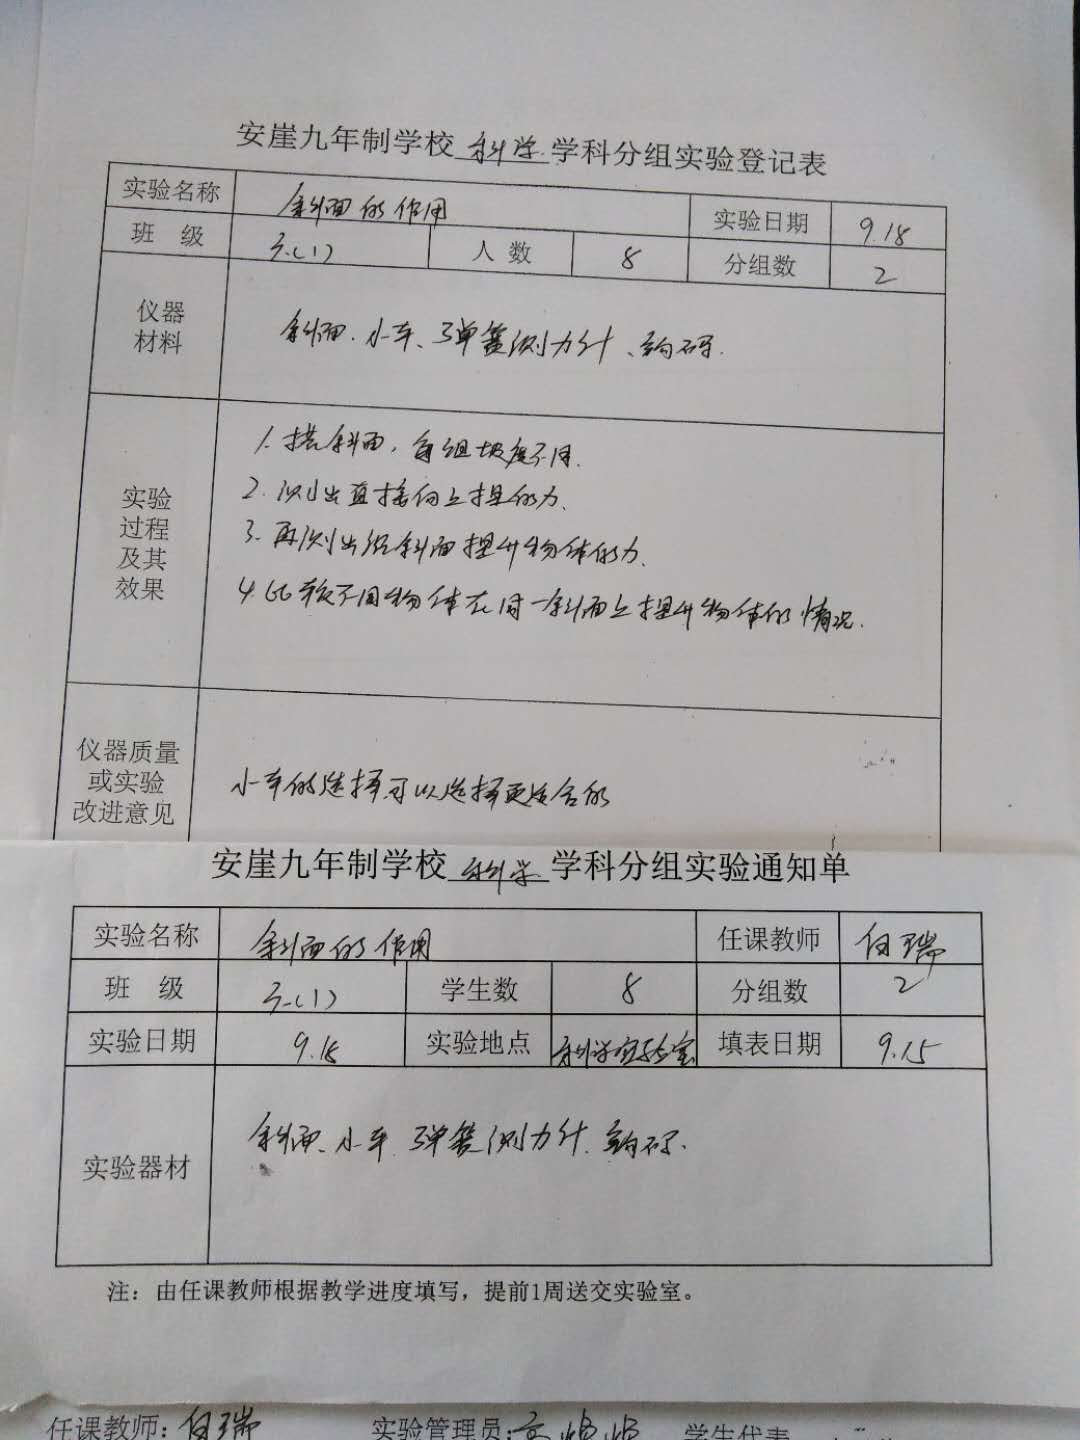 安崖九年制学校 科学 学科分组实验登记表
实验名称 斜面的作用 实验日期 9.18
班 级 六(1) 人数 8 分组数 2
仪器
材料
斜面、小车、弹簧测力计、钩码.
实验
过程
及其
效果
1. 搭斜面, 每组坡度不同.
2. 测出直接向上提的力.
3. 再测出沿斜面提升物体的力.
4. 比较不同物体在同一斜面上提升物体的情况.
仪器质量
或实验
改进意见
小车的选择可以选择更适合的
安崖九年制学校 科学 学科分组实验通知单
实验名称 斜面的作用 任课教师 白瑞
班 级 六(1) 学生数 8 分组数 2
实验日期 9.18 实验地点 科学实验室 填表日期 9.15
实验器材 斜面、小车、弹簧测力计、钩码.
注：由任课教师根据教学进度填写，提前1周送交实验室。
任课教师: 白瑞 实验管理员: 学生代表